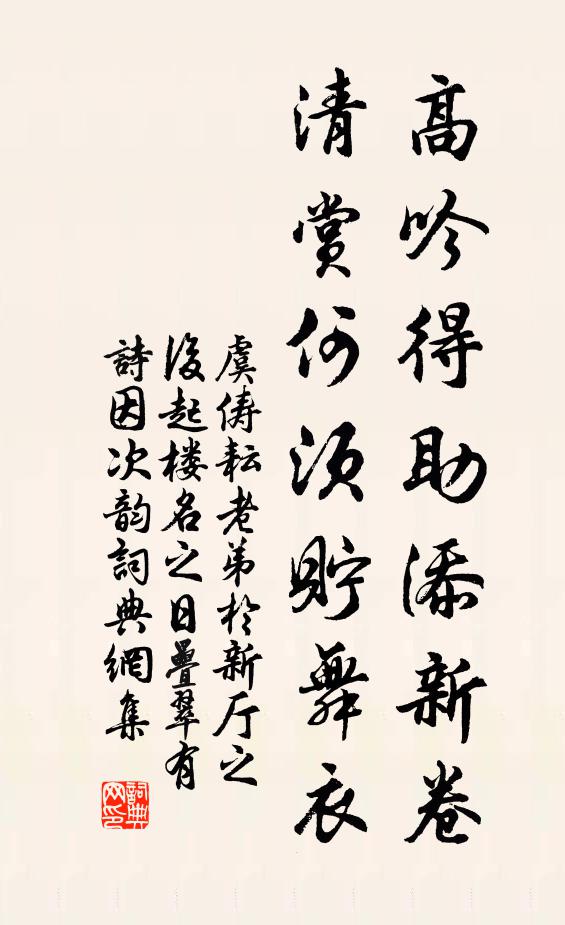 高吟得助添新卷
清賞何須貯舞衣
虞俦耘老弟於新厅之
後起楼名之日疊翠有
詩因次韵詞典網集
詞典
网印